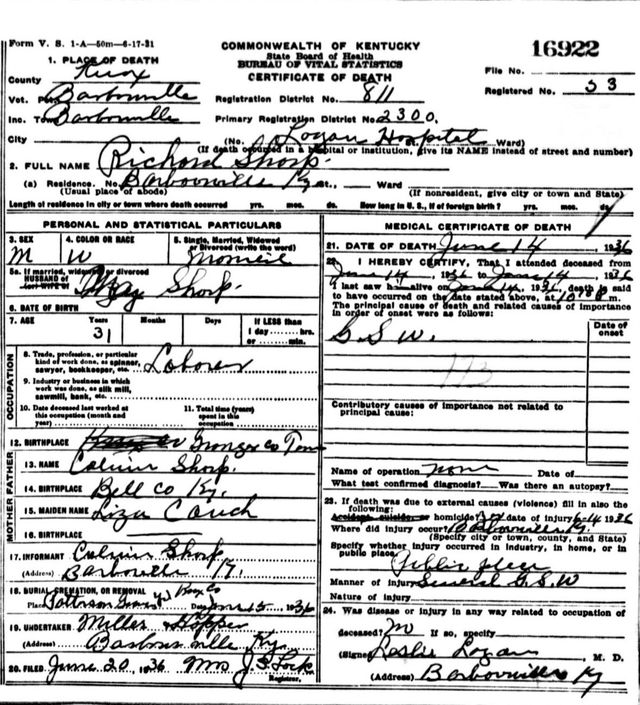 Form V. S. 1-A—50m—6-17-31
COMMONWEALTH OF KENTUCKY
State Board of Health
BUREAU OF VITAL STATISTICS
CERTIFICATE OF DEATH
16922
File No.
Registered No. 53
1. PLACE OF DEATH
County Knox
Vot. Barbourville
Inc. Town Barbourville
City
Registration District No. 811
Primary Registration District No. 2300
(No. Logan Hospital St. Ward)
(If death occurred in a hospital or institution, give its NAME instead of street and number)
2. FULL NAME Richard Sharp
(a) Residence. No. Barbourville Ky St., Ward
(Usual place of abode) (If nonresident, give city or town and State)
Length of residence in city or town where death occurred yrs. mos. ds. How long in U. S., if of foreign birth? yrs. mos. ds.
PERSONAL AND STATISTICAL PARTICULARS
3. SEX 4. COLOR OR RACE 5. Single, Married, Widowed
or Divorced (write the word)
M W
5a. If married, widowed or divorced
HUSBAND OF
(or) WIFE OF May Sharp
6. DATE OF BIRTH
7. AGE Years Months Days If LESS than
31 1 day hrs.
or min.
OCCUPATION
8. Trade, profession, or particular
kind of work done, as spinner,
sawyer, bookkeeper, etc. Laborer
9. Industry or business in which
work was done, as silk mill,
sawmill, bank, etc.
10. Date deceased last worked at 11. Total time (years)
this occupation (month and spent in this
year) occupation
12. BIRTHPLACE Granger Co Tenn
MOTHER FATHER
13. NAME Calvin Sharp
14. BIRTHPLACE Bell Co Ky.
15. MAIDEN NAME Liza Couch
16. BIRTHPLACE
17. INFORMANT Calvin Sharp
(Address) Barbourville Ky.
18. BURIAL, CREMATION, OR REMOVAL Knox Co
Place Patterson Date June 15 1936
19. UNDERTAKER Miller Hopper
(Address) Barbourville Ky.
20. FILED June 20, 1936 Mrs J. S. Lock
Registrar.
MEDICAL CERTIFICATE OF DEATH
21. DATE OF DEATH June 14 1936
22. I HEREBY CERTIFY, That I attended deceased from
June 14, 1936 to June 14, 1936
I last saw him alive on June 14, 1936, death is said
to have occurred on the date stated above, at 10:00 m.
The principal cause of death and related causes of importance
in order of onset were as follows:
Date of
onset
G S W.
173
Contributory causes of importance not related to
principal cause:
Name of operation none Date of
What test confirmed diagnosis? Was there an autopsy?
23. If death was due to external causes (violence) fill in also the
following:
Accident, suicide, or homicide? Yes date of injury 6-14 1936
Where did injury occur? Barbourville Ky.
(Specify city or town, county, and State)
Specify whether injury occurred in industry, in home, or in
public place. Public place
Manner of injury Several G.S.W
Nature of injury
24. Was disease or injury in any way related to occupation of
deceased? No If so, specify
(Signed) Leslie Logan M. D.
(Address) Barbourville Ky